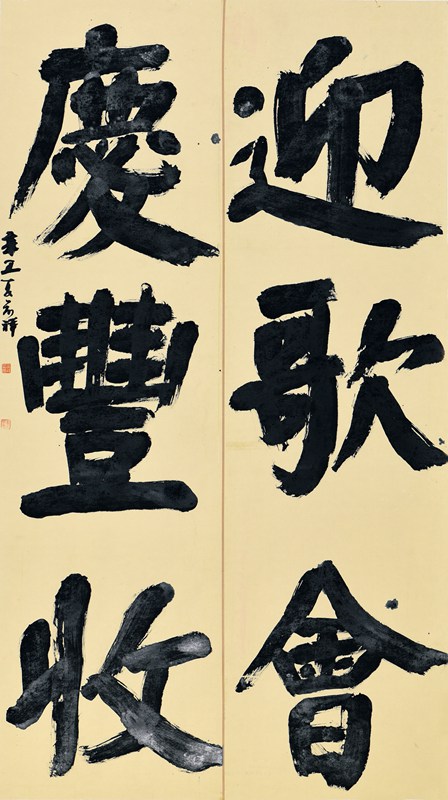 迎歌會
慶豐收
辛丑夏